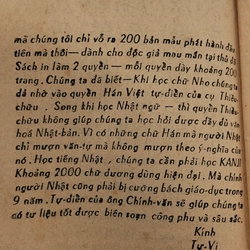 mà chúng tôi chỉ vỏ ra 200 bản mẫu phát hành đầu
tiên mà thôi – dành cho độc giả mau mắn tại thủ đô.
Sách in làm 2 quyển – mỗi quyển dầy khoảng 200
trang. Chúng ta đã biết – Khi học chữ Nho chúng ta
đã nhờ vào quyển Hán Việt tự-diển của cụ Thiều-
chửu. Song khi học Nhật ngữ – thì quyển Thiều-
chửu không giúp chúng ta học hỏi được đầy đủ văn-
hoá Nhật-bản. Vì có những chữ Hán mà người Nhật
chỉ mượn văn-tự mà không mượn theo ý-nghĩa của
nó. Học tiếng Nhật, chúng ta cần phải học KANJI
Khoảng 2000 chữ đương dùng hiện đại. Mà chính
người Nhật cũng phải bị cưỡng bách giáo-dục trong
9 năm. Tự-diển của ông Chính-văn sẽ giúp chúng ta
có tư liệu tốt được biên soạn công phu và sâu sắc.
Kính
Tự-Vi